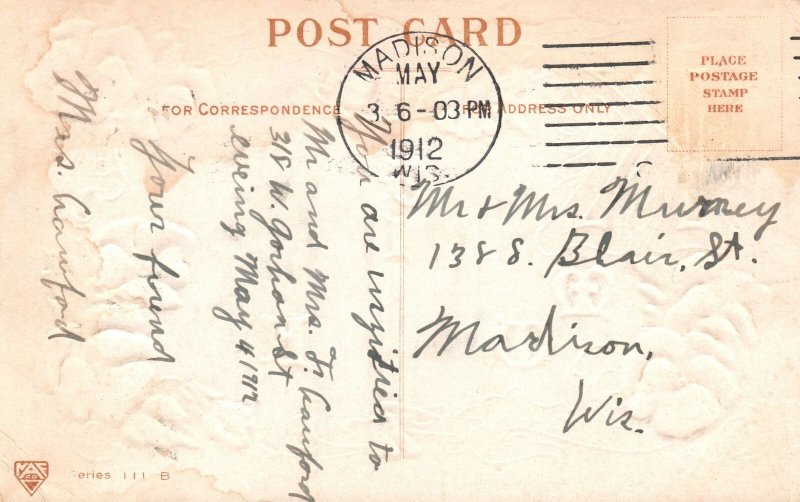 POST CARD
MADISON
MAY
3 6-03 PM
1912
WIS.
PLACE
POSTAGE
STAMP
HERE
FOR CORRESPONDENCE
ADDRESS ONLY
You are invited to
Mr and Mrs. F. Crawford
318 W. Gorham St
evening May 4 1912
Your friend
Mrs. Crawford
Mr & Mrs. Murrey
138 S. Blair, St.
Madison,
Wis.
Series 111 B